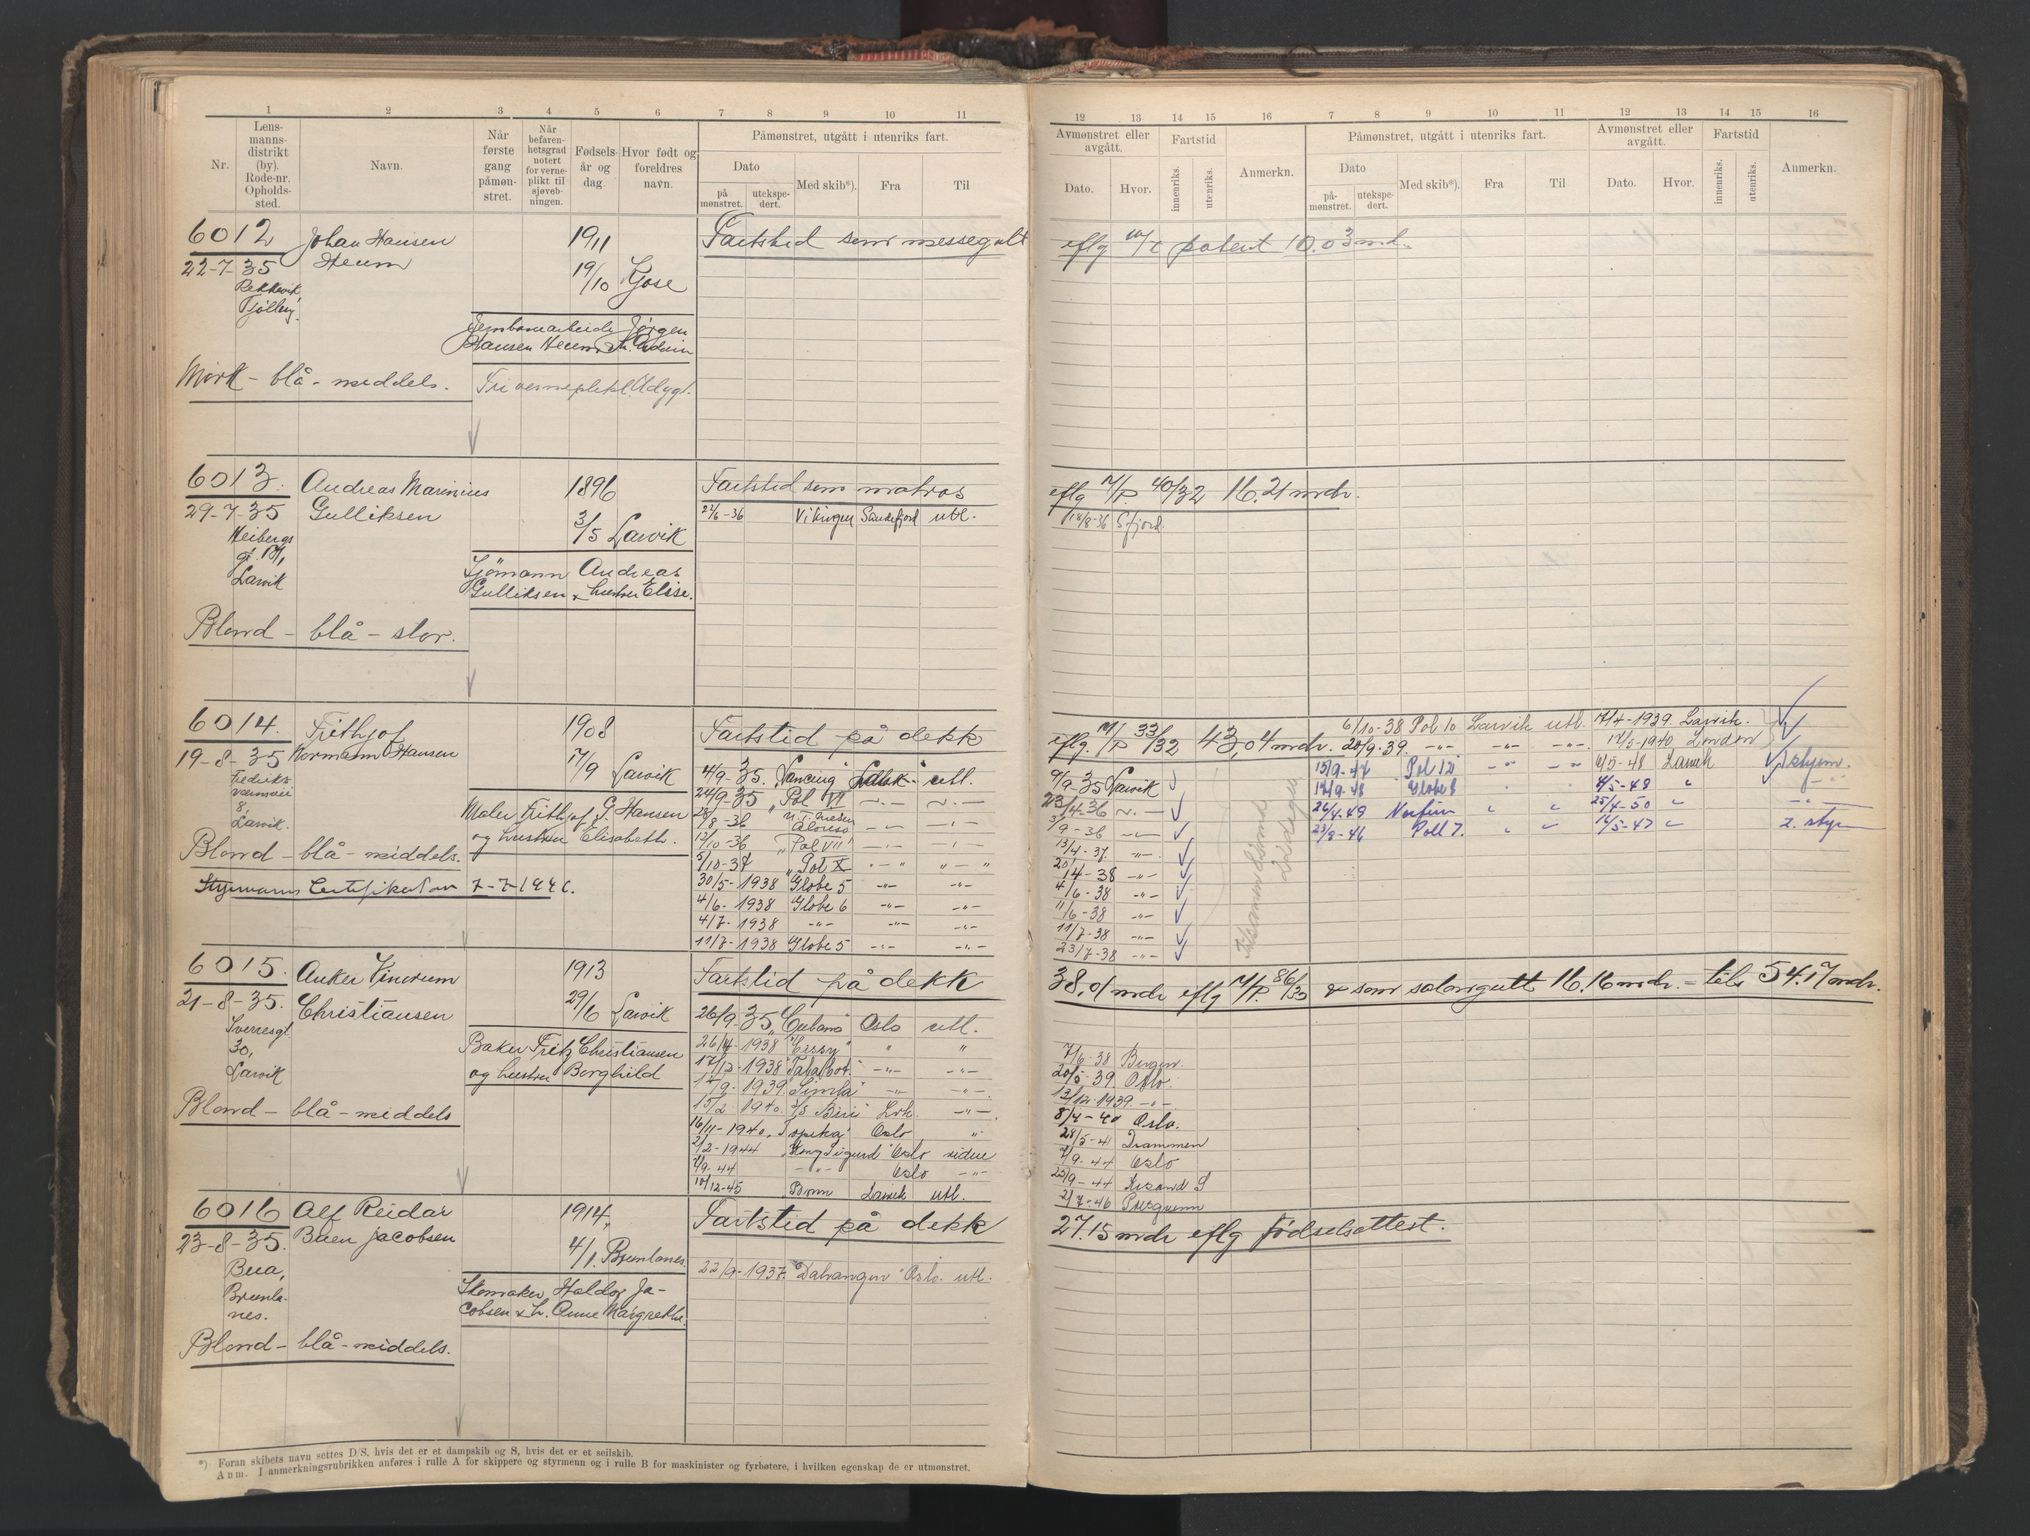 1 2 3 4 5 6 7 8 9 10 11
Nr.
Lens-
manns-
distrikt
(by).
Rode-nr.
Opholds-
sted.
Navn.
Når
første
gang
påmøn-
stret.
Når
befaren-
hetsgrad
notert
for verne-
plikt til
sjøveb-
ningen.
Fødsels-
år og
dag.
Hvor født og
foreldres
navn.
Påmønstret, utgått i utenriks fart.
Dato
på
mønstret.
utekspe-
dert.
Med skib*).
Fra
Til
6012 Johan Hansen 1911 Fartstid som messegutt
22-7-35 Heum 19/10 Kjose
Tjølling.
Jørgen
Hansen Heum
Mørk - blå - middels.
6013. Andreas Marinius 1896 Fartstid som matros
29-7-35 Gulliksen 3/5 Larvik
22/6-36 Vikingen Sandefjord utl.
Heibergs
Larvik
Sjømann Andreas
Gulliksen & hustru Elise.
Blond - blå - stor.
6014. Frithjof 1908 Fartstid på dekk
19-8-35 Normann Hansen 17/9 Larvik
4/9-35. "Lancing" utl.
24/9-35 "Pol VI"
8,
Larvik.
Maler Frithjof G. Hansen
og hustru Elisabeth.
28/8-36 Alonso
12/10-36 "Pol VII"
Blond - blå - middels.
5/10-37 "Pol X
30/5-1938 Globe 5
Styrmanns Certifikat
4/6-1938 Globe 6
4/7-1938
11/7-1938 Globe 5
6015. Anker Vincrum 1913 Fartstid på dekk
21-8-35. Christiansen 29/6 Larvik
26/9-35 "Cubano" Oslo utl.
Sverresgt
30,
Larvik
Baker Fritz Christiansen
og hustru Borghild
26/4-1938 "Cissy" " "
17/12-1938
14/9-1939 "Simla"
Blond - blå - middels
15/2-1940. D/S Biri
16/11-1940. "Topeka" Oslo "
2/2-1944 Kong Sigurd Oslo
7/9-44 Oslo
10/12-45 Larvik utl.
6016 Alf Reidar 1914, Fartstid på dekk
23-8-35. Baen Jacobsen 4/1. Brunlanes.
22/9-1937. "Dalvangen" Oslo. utl.
Bua,
Brunla-
nes.
Skomaker Haldor Ja-
cobsen & h. Anne Margrethe.
Blond - blå - middels.
*) Foran skibets navn settes D/S, hvis det er et dampskib og S, hvis det er et seilskib.
Anm. I anmerkningsrubrikken anføres i rulle A for skippere og styrmenn og i rulle B for maskinister og fyrbøtere, i hvilken egenskap de er utmønstret.
12 13 14 15 16 7 8 9 10 11 12 13 14 15 16
Avmønstret eller
avgått.
Dato.
Hvor.
Fartstid
innenriks.
utenriks.
Anmerkn.
Påmønstret, utgått i utenriks fart.
Dato
på-
mønstret.
utekspe-
dert.
Med skib*).
Fra
Til
Avmønstret eller
avgått.
Dato.
Hvor.
Fartstid
innenriks.
utenriks.
Anmerkn.
eflg patent 10.03 md.
eflg M/P 40/32 16.21 mdr.
14/8-36 Sfjord.
eflg. M/P 33/32 43,04 mdr.
6/10-38 Pol 10 Larvik utl. 17/4-1939. Larvik.
20/9-39. 12/5-1940 London
9/9-35 Larvik 15/9-47 Pol 12 6/5-48 Larvik
14/9-48 Globe 8 4/5-49
23/4-36 26/4-49 25/4-50
3/9-36 23/8-46 Poll 7. 16/5-47 2. styr
13/4-37
20/4-38
4/6-38
11/6-38
11/7-38
23/7-38
38,01 mdr eflg M/P. 86/33 & som salongutt 16.16 mdr. = tils 54.17 mdr.
7/6-38 Bergen
20/5-39. Oslo.
13/12-1939
8/4-40 Oslo.
28/5-41 Drammen
7/9-44 Oslo
25/9-44 Krsand S
2/7-46 Porsgrunn
27.15 mdr eflg fødselsattest.